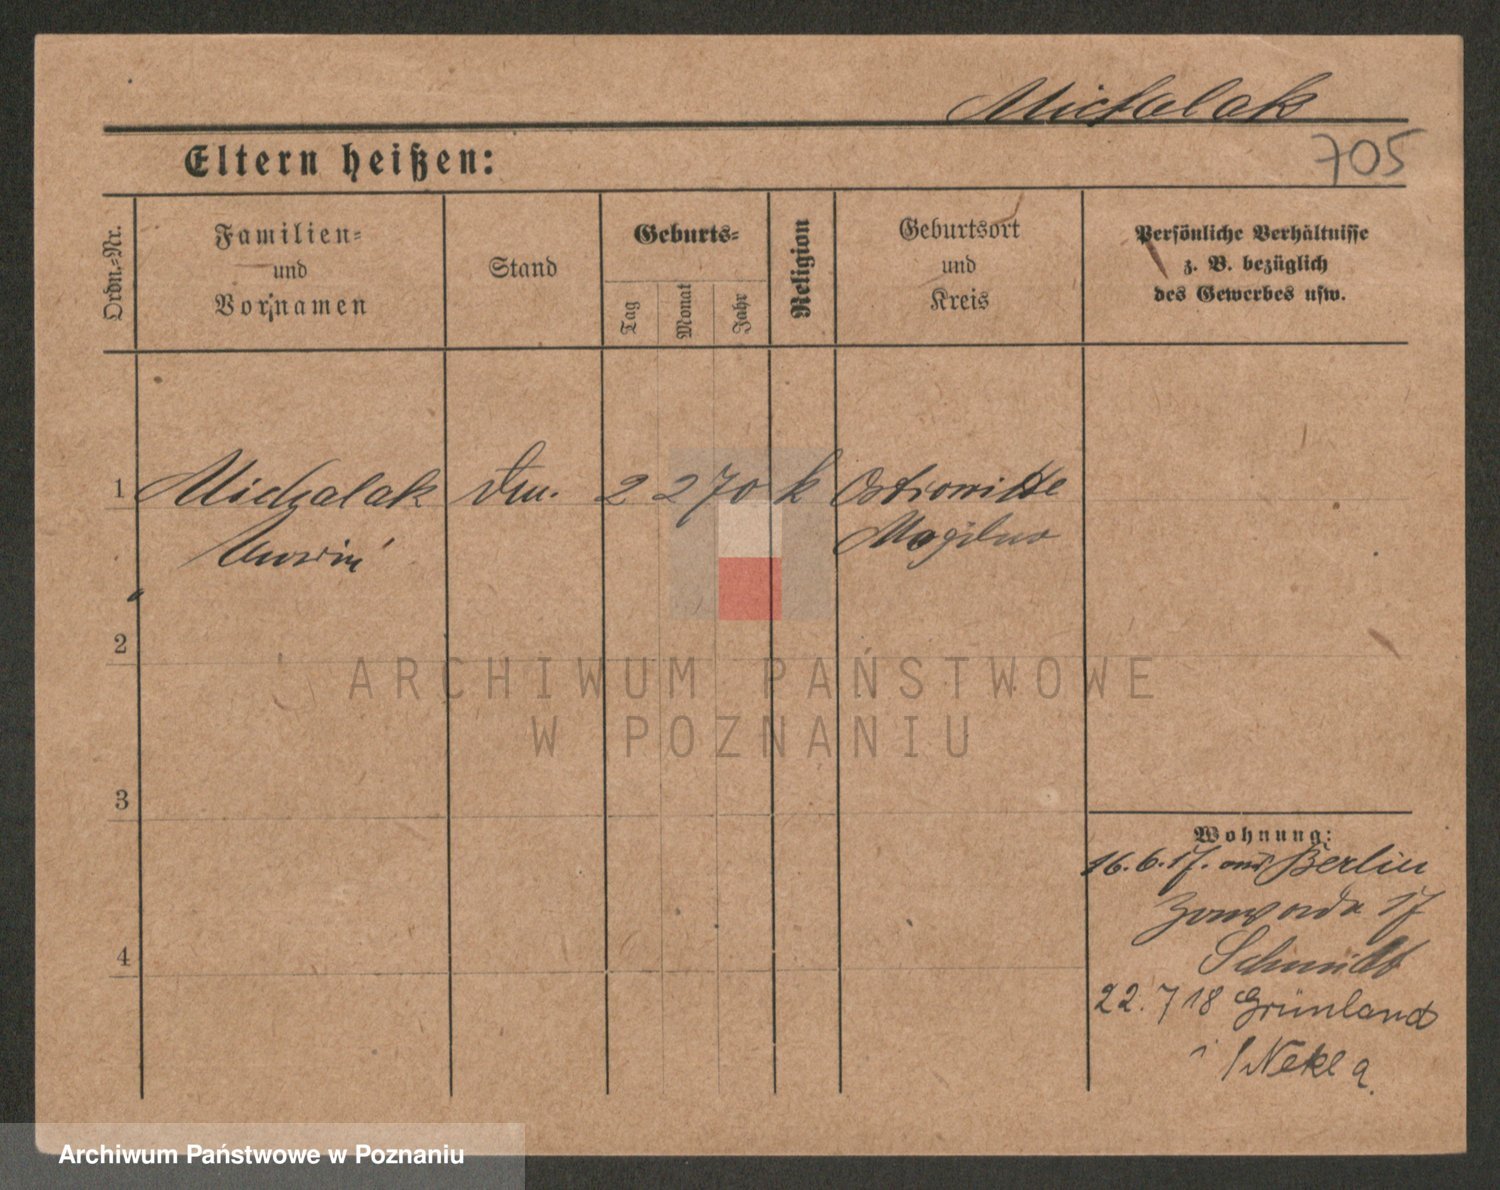 Michalak
705
Eltern heißen:
Ordn.=Nr.
Familien=
und
Vornamen
Stand
Geburts=
Tag
Monat
Jahr
Religion
Geburtsort
und
Kreis
Persönliche Verhältnisse
z. B. bezüglich
des Gewerbes usw.
1 Michalak 2 2 70 k Ostrowitte
Mogilno
2
3
4
Wohnung:
16.6.17. aus Berlin
17
Schmidt
22.7 18 Grünland
Nekla
ARCHIWUM PAŃSTWOWE
W POZNANIU
Archiwum Państwowe w Poznaniu